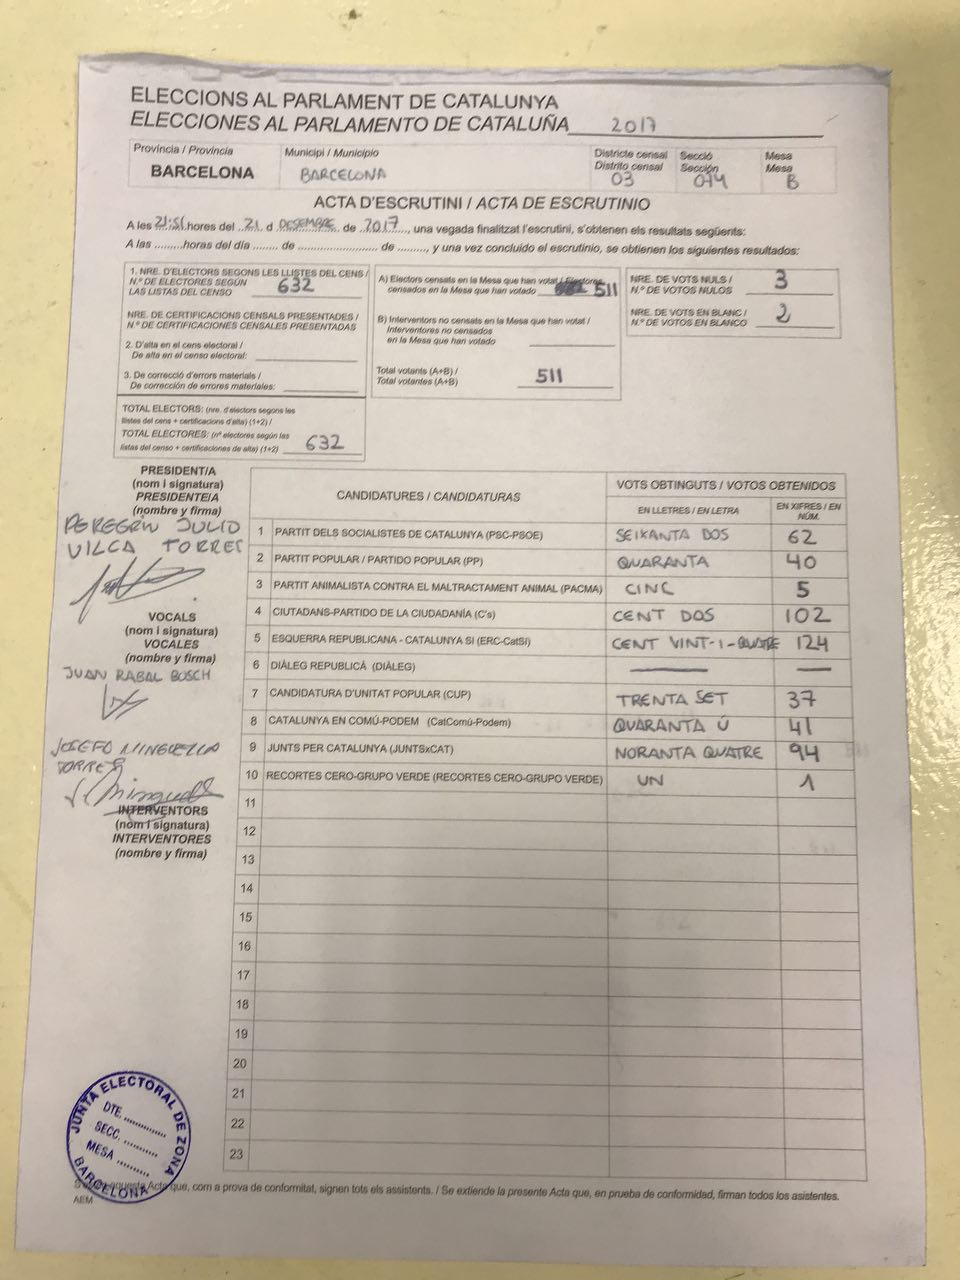 ELECCIONS AL PARLAMENT DE CATALUNYA
ELECCIONES AL PARLAMENTO DE CATALUÑA 2017
Província / Provincia
BARCELONA
Municipi / Municipio
BARCELONA
Districte censal
Distrito censal
03
Secció
Sección
074
Mesa
Mesa
B
ACTA D'ESCRUTINI / ACTA DE ESCRUTINIO
A les 21:51 hores del 21 d DESEMBRE de 2017, una vegada finalitzat l'escrutini, s'obtenen els resultats següents:
A las .........horas del día ....... de ....................... de ........, y una vez concluido el escrutinio, se obtienen los siguientes resultados:
1. NRE. D'ELECTORS SEGONS LES LLISTES DEL CENS /
N.º DE ELECTORES SEGÚN
LAS LISTAS DEL CENSO
632
NRE. DE CERTIFICACIONS CENSALS PRESENTADES /
N.º DE CERTIFICACIONES CENSALES PRESENTADAS
2. D'alta en el cens electoral /
De alta en el censo electoral:
3. De correcció d'errors materials /
De corrección de errores materiales:
TOTAL ELECTORS: (nre. d'electors segons les
llistes del cens + certificacions d'alta) (1+2) /
TOTAL ELECTORES: (nº electores según las
listas del censo + certificaciones de alta) (1+2)
632
A) Electors censats en la Mesa que han votat / Electores
censados en la Mesa que han votado 511
B) Interventors no censats en la Mesa que han votat /
Interventores no censados
en la Mesa que han votado
Total votants (A+B) /
Total votantes (A+B)
511
NRE. DE VOTS NULS /
N.º DE VOTOS NULOS
3
NRE. DE VOTS EN BLANC /
N.º DE VOTOS EN BLANCO
2
PRESIDENT/A
(nom i signatura)
PRESIDENTE/A
(nombre y firma)
PEREGRÍN JULIO
VILCA TORRES
VOCALS
(nom i signatura)
VOCALES
(nombre y firma)
JUAN RABAL BOSCH
INTERVENTORS
(nom i signatura)
INTERVENTORES
(nombre y firma)
CANDIDATURES / CANDIDATURAS
VOTS OBTINGUTS / VOTOS OBTENIDOS
EN LLETRES / EN LETRA
EN XIFRES / EN NÚM.
1 PARTIT DELS SOCIALISTES DE CATALUNYA (PSC-PSOE) SEIXANTA DOS 62
2 PARTIT POPULAR / PARTIDO POPULAR (PP) QUARANTA 40
3 PARTIT ANIMALISTA CONTRA EL MALTRACTAMENT ANIMAL (PACMA) CINC 5
4 CIUTADANS-PARTIDO DE LA CIUDADANÍA (C's) CENT DOS 102
5 ESQUERRA REPUBLICANA - CATALUNYA SÍ (ERC-CatSí) CENT VINT-I-QUATRE 124
6 DIÀLEG REPUBLICÀ (DIÀLEG)
7 CANDIDATURA D'UNITAT POPULAR (CUP) TRENTA SET 37
8 CATALUNYA EN COMÚ-PODEM (CatComú-Podem) QUARANTA Ú 41
9 JUNTS PER CATALUNYA (JUNTSxCAT) NORANTA QUATRE 94
10 RECORTES CERO-GRUPO VERDE (RECORTES CERO-GRUPO VERDE) UN 1
11
12
13
14
15
16
17
18
19
20
21
22
23
JUNTA ELECTORAL DE ZONA
DTE. ............
SECC. ............
MESA .........
BARCELONA
Acta que, com a prova de conformitat, signen tots els assistents. / Se extiende la presente Acta que, en prueba de conformidad, firman todos los asistentes.
AEM